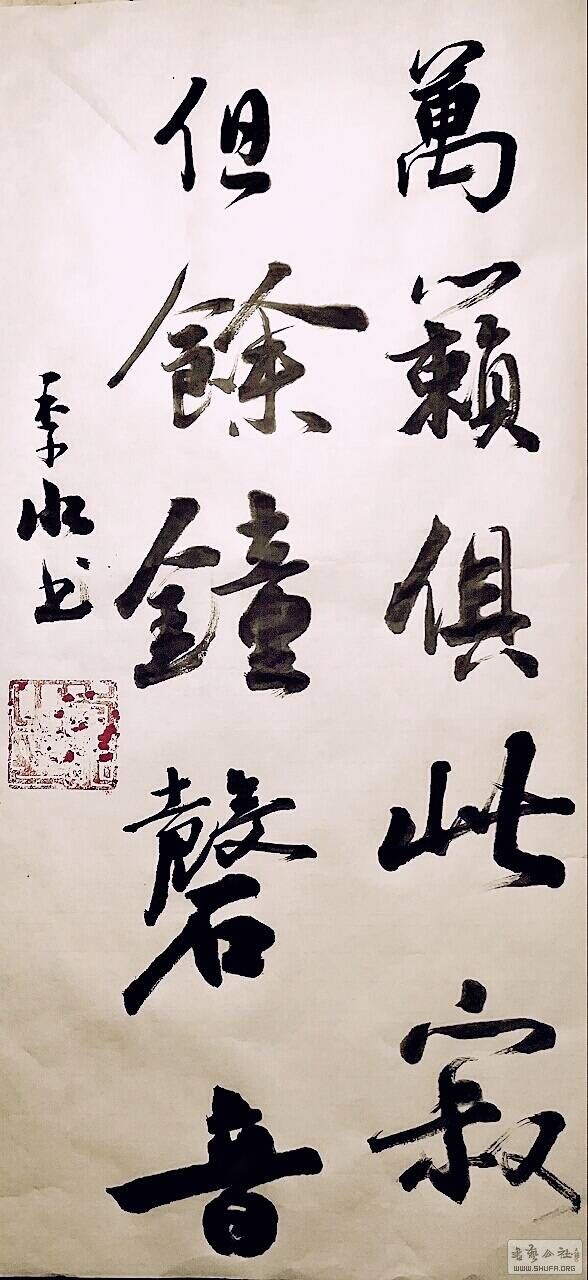 萬籟俱此寂
但餘鐘磬音
季水书
書藝公社
WWW.SHUFA.ORG